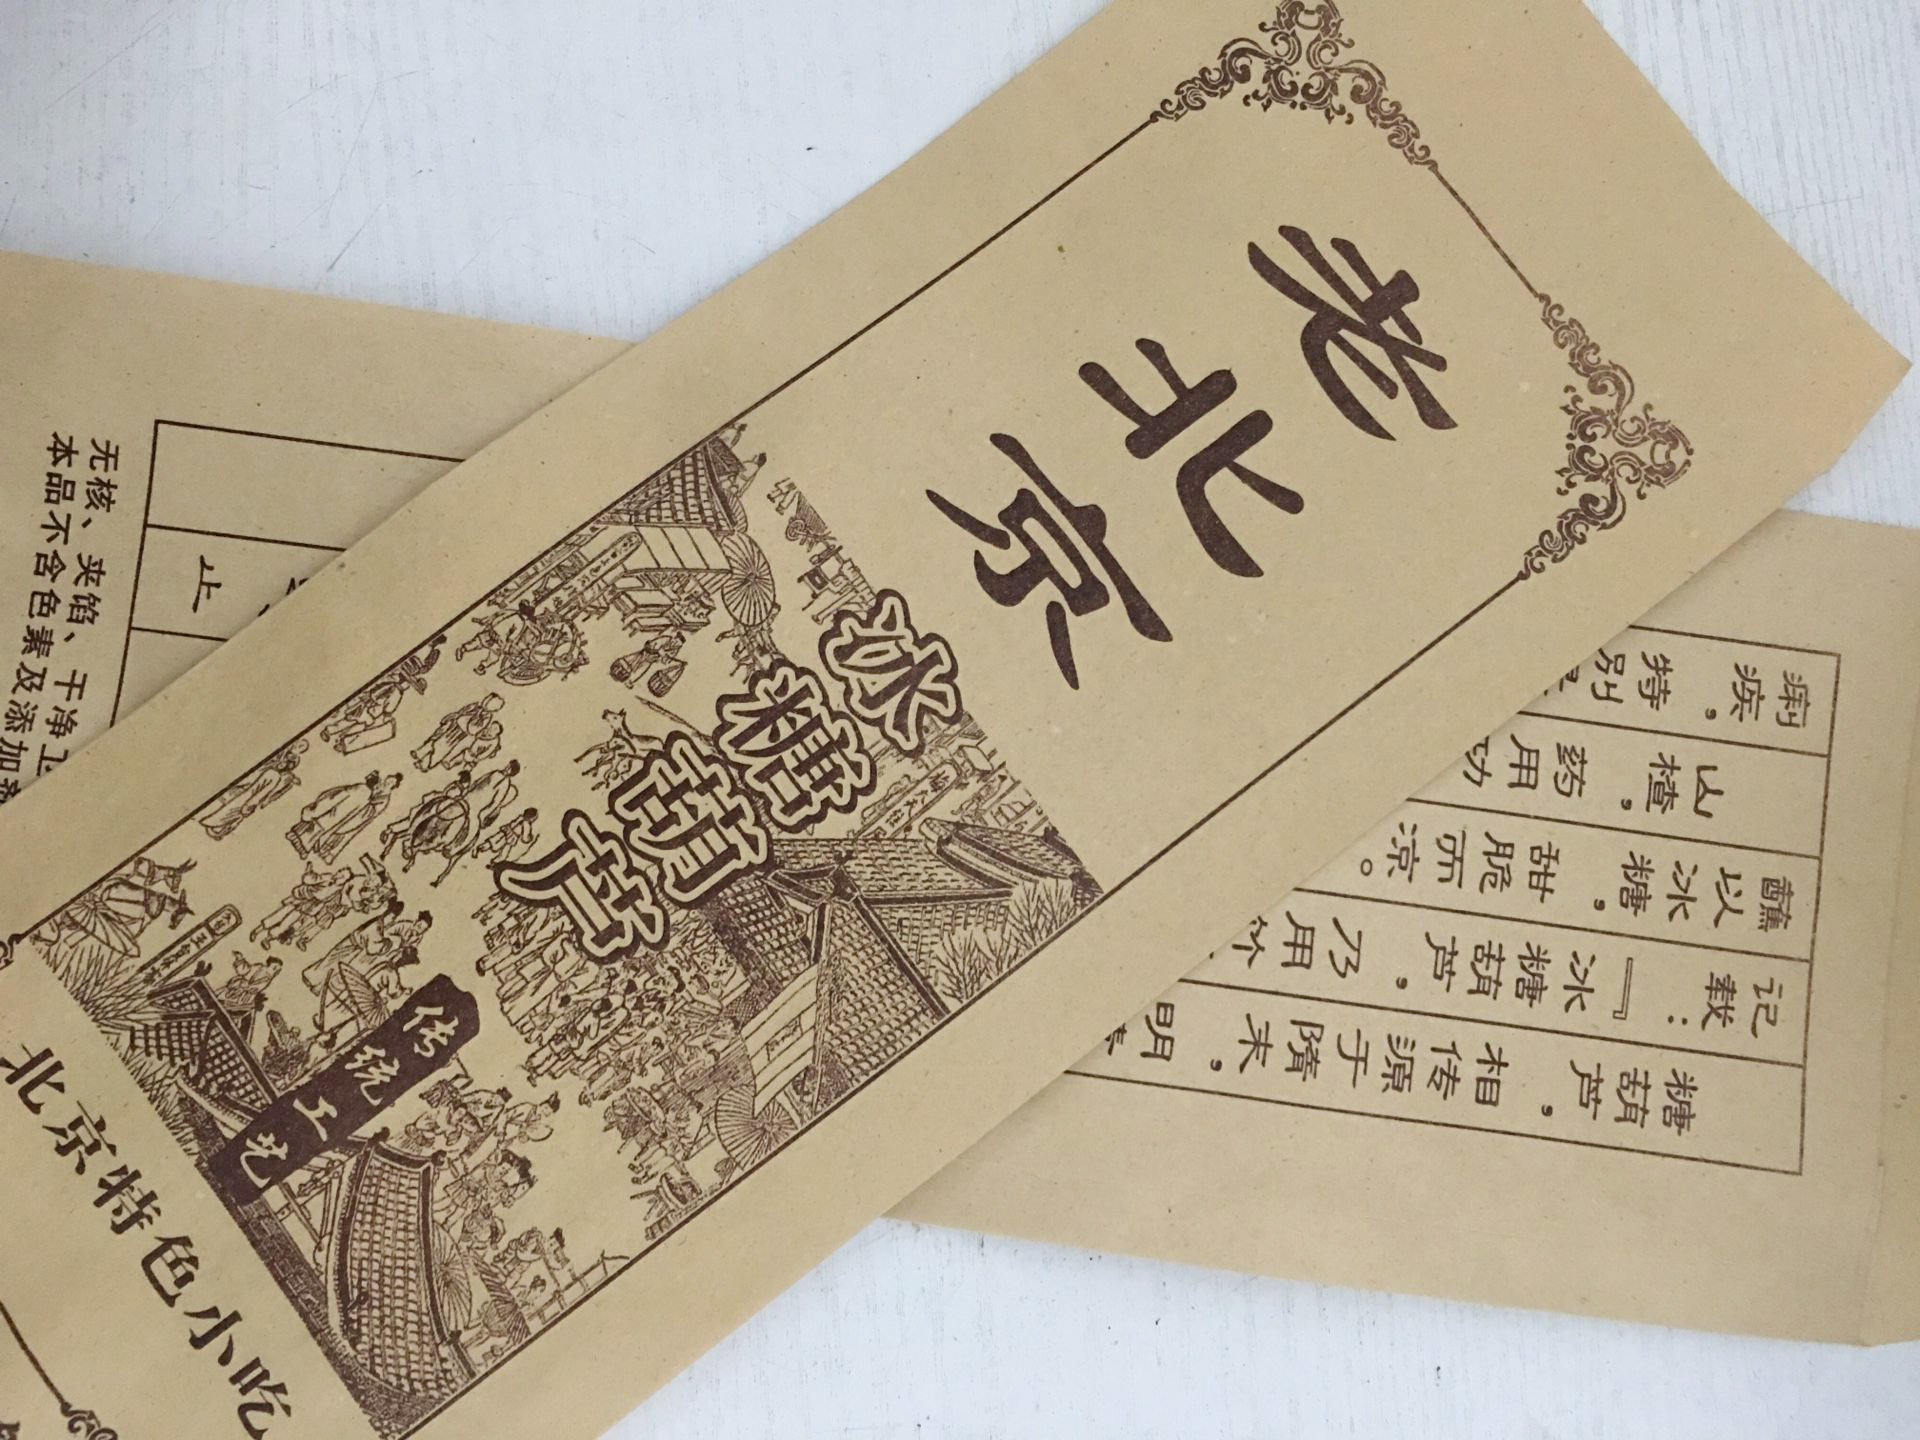 老北京
冰糖葫芦
传统工艺
北京特色小吃
糖葫芦，相传源于隋末，明
记载：『冰糖葫芦，乃用竹
蘸以冰糖，甜脆而凉。
山楂，药用功
痢疾，特别
止
无核、夹馅、干净卫
本品不含色素及添加